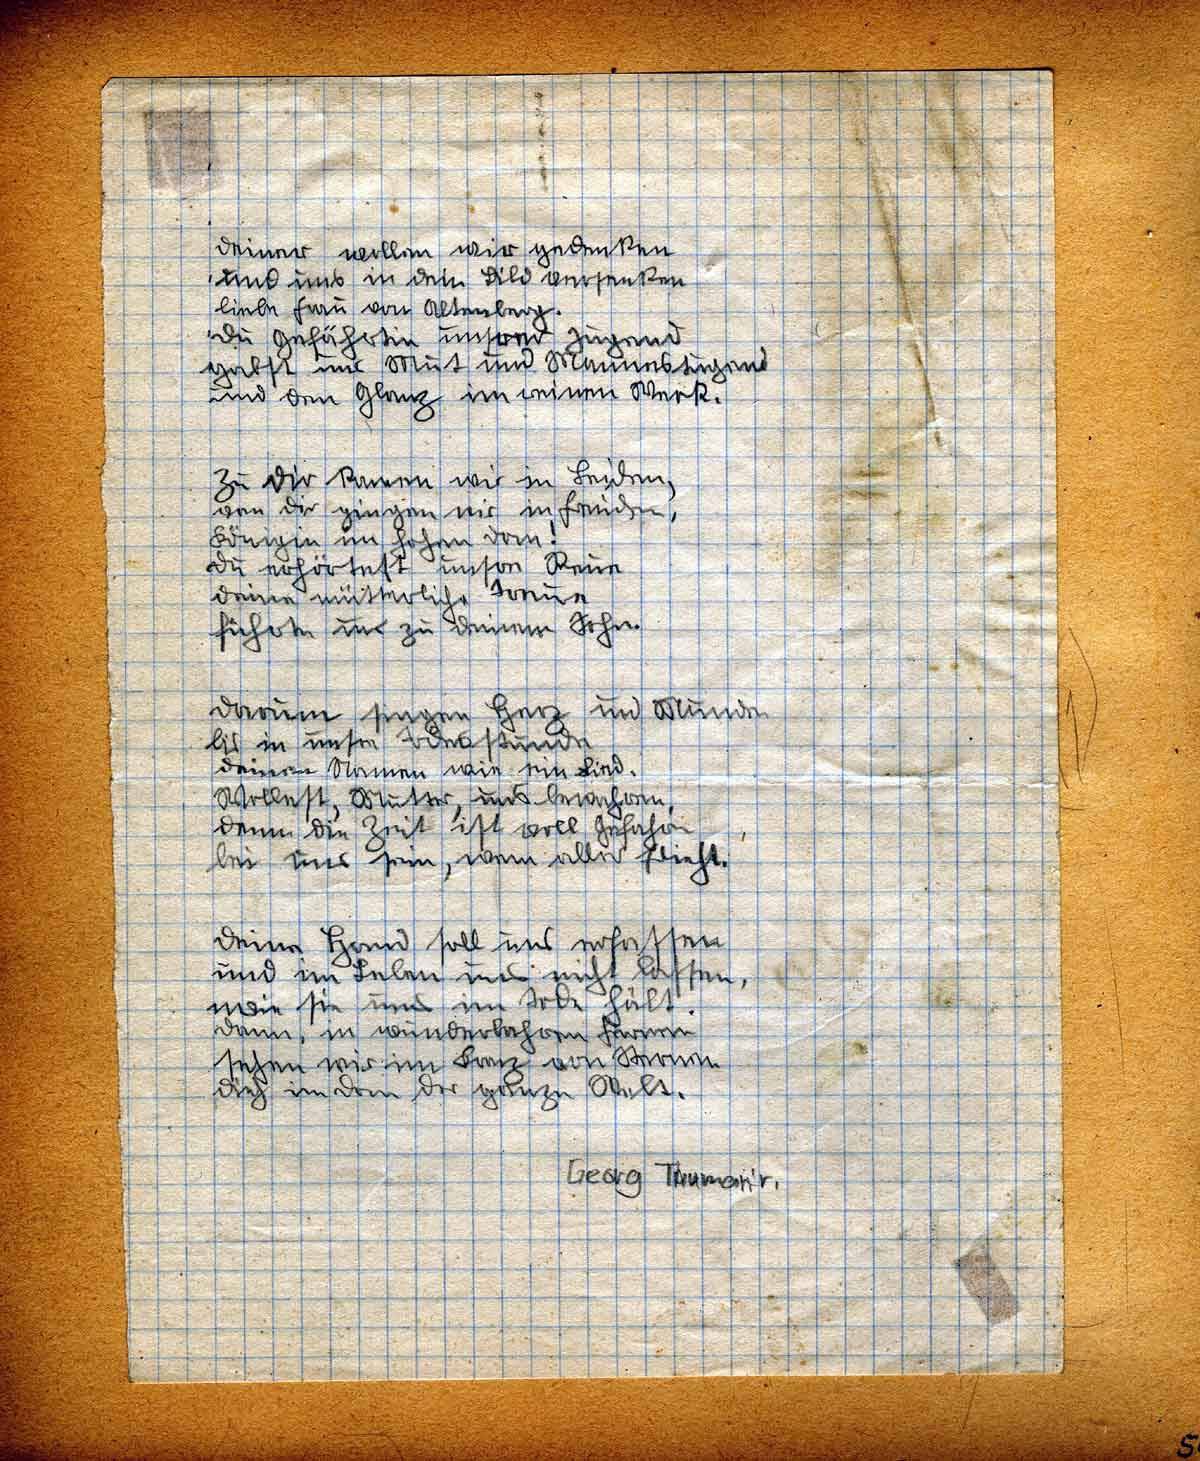 deiner wollen wir gedenken
und uns in dein Bild versenken
liebe Frau von Altenberg.
Du Gefährtin unsrer Jugend
gabst uns Mut und Mannestugend
und den Glanz im reinen Werk.
Zu dir kamen wir in Leiden,
von dir gingen wir in Freuden,
Königin im hohen Dom!
Du erhörtest unsre Reue
deine mütterliche Treue
führte uns zu deinem Sohn.
Darum singen Herz und Munde
bis in unsre Todesstunde
deinen Namen wie ein Lied.
Wollest, Mutter, uns bewahren,
denn die Zeit ist voll Gefahren,
bei uns sein, wenn alles flieht.
Deine Hand soll uns erfassen
und im Leben uns nicht lassen,
wie sie uns im Tode hält.
Dann, in wunderbahren Fernen
sehen wir im Kranz von Sternen
dich im Dom der ganzen Welt.
Georg